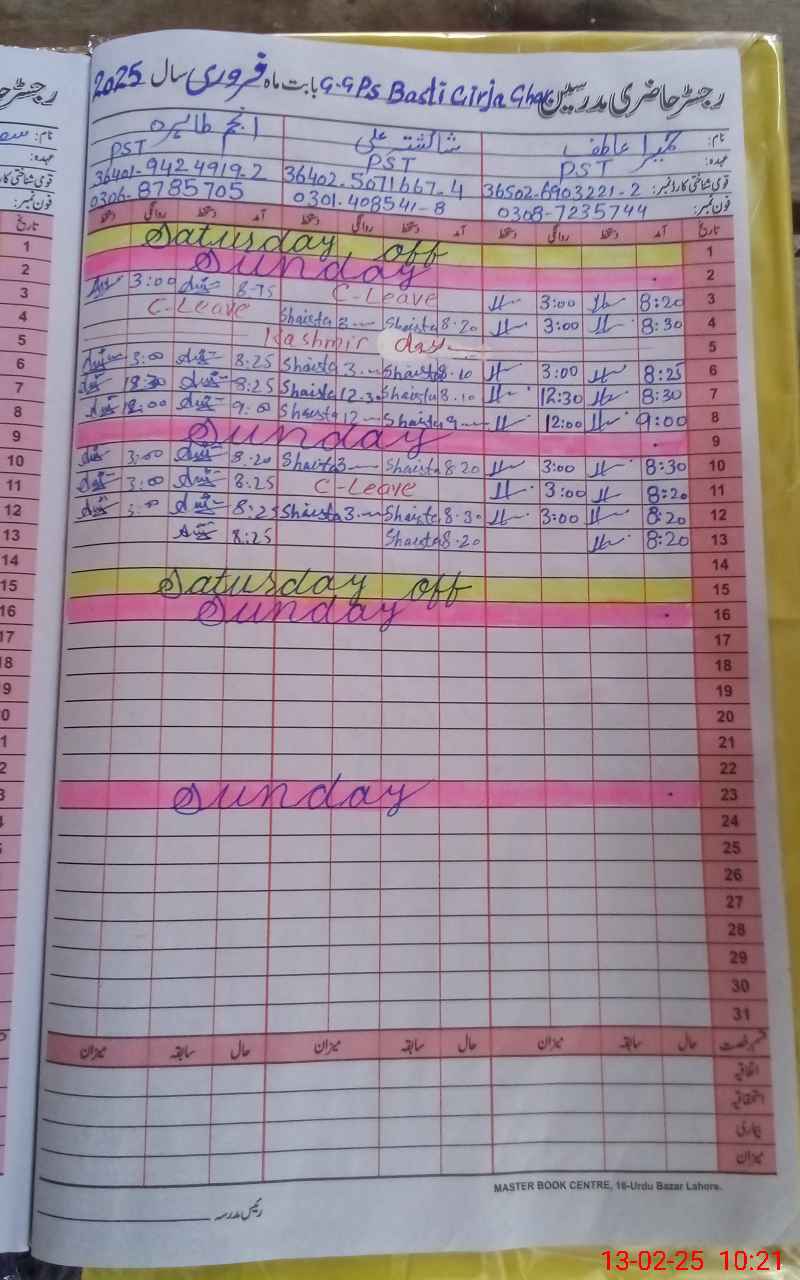 رجسٹر حاضری مدرسین G.G.P.s Basti Girja Ghar بابت ماہ فروری سال 2025
نام: عاطف شائستہ علی انجم طاہرہ
عہدہ: PST PST PST
قومی شناختی کارڈ نمبر: 36502-6903221-2 36402-5071667-4 36401-9424919-2
فون نمبر: 0308-7235744 0301-408541-8 0306-8785705
تاریخ آمد دستخط روانگی دستخط آمد دستخط روانگی دستخط آمد دستخط روانگی دستخط
1 Saturday off
2 Sunday
3 8:20 3:00 C-Leave 3:00
4 8:30 3:00 Shaista 8.20 Shaista 3 C-Leave
5 Kashmir day
6 8:25 3:00 Shaista 8.10 Shaista 3 8.25 3:00
7 8:30 12:30 Shaista 8.10 Shaista 12.30 8:25
8 9:00 12:00 Shaista 9 Shaista 12 9:00 12:00
9 Sunday
10 8:30 3:00 Shaista 8.20 Shaista 3 8.20 3:00
11 8:20 3:00 C-Leave 8.25 3:00
12 8:20 3:00 Shaista 8.30 Shaista 3 8.25
13 8:20 Shaista 8.20 8:25
14
15 Saturday off
16 Sunday
17
18
19
20
21
22
23 Sunday
24
25
26
27
28
29
30
31
قسم رخصت حال سابقہ میزان حال سابقہ میزان حال سابقہ میزان
اتفاقیہ
استحقاقیہ
بیماری
میزان
MASTER BOOK CENTRE, 16-Urdu Bazar Lahore.
رئیس مدرسہ
13-02-25 10:21